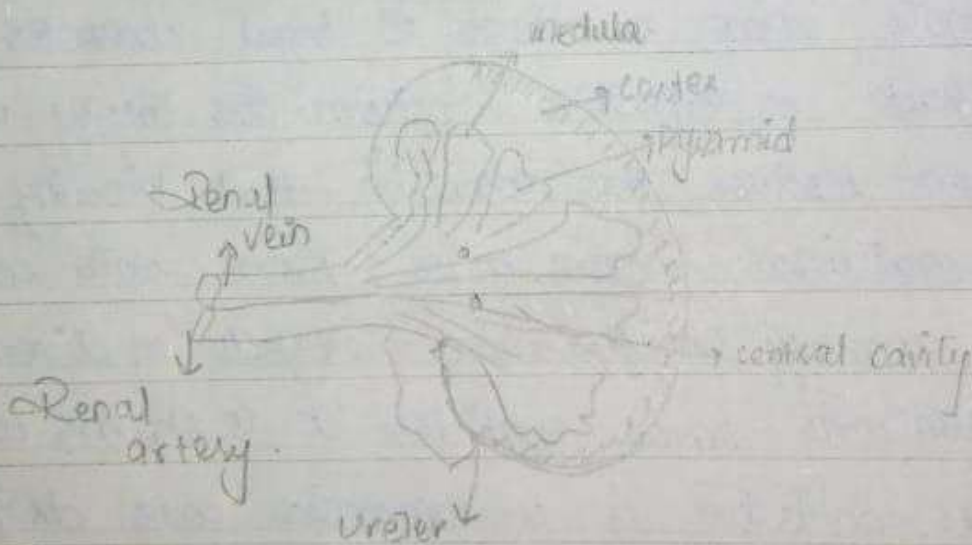 medulla
cortex
pyramid
Renal
vein
central cavity
Renal
artery.
Ureter